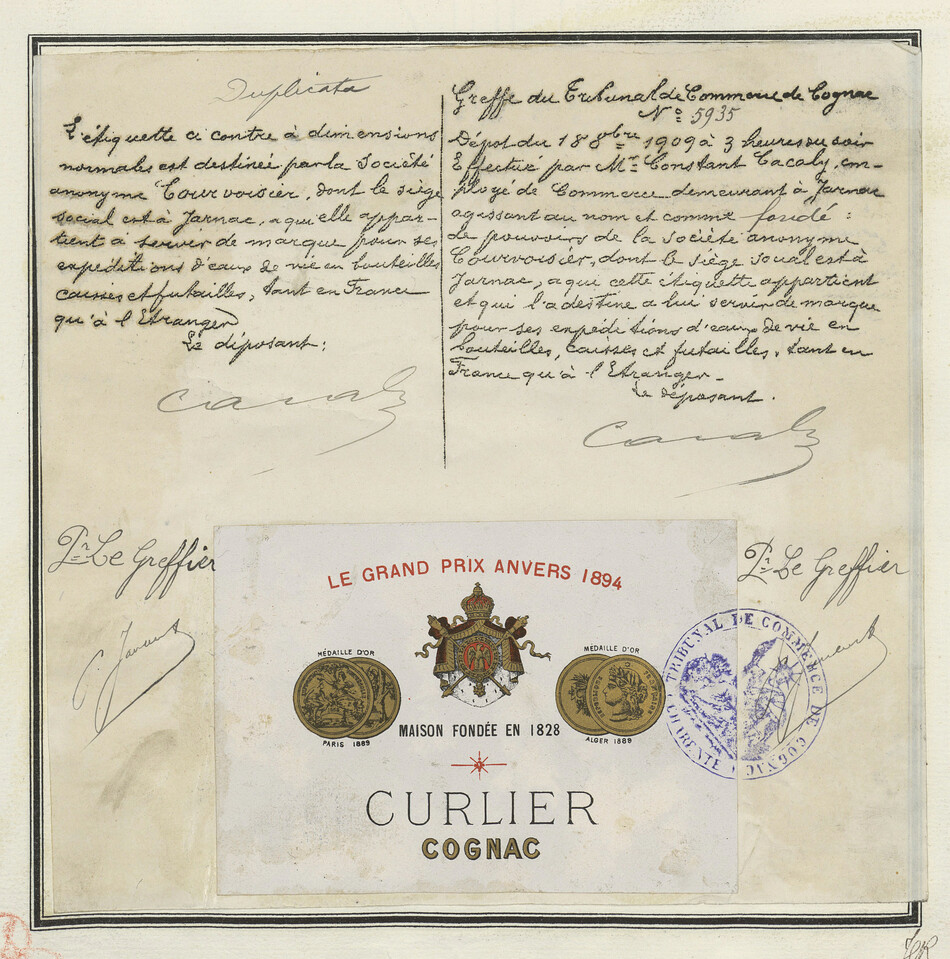 Duplicata
L'étiquette ci contre à dimensions
normales est destinée par la Société
anonyme Courvoisier, dont le siège
social est à Jarnac, a qu'elle appar-
tient à servir de marque pour ses
expéditions d'eaux de vie en bouteilles
caisses et futailles, tant en France
qu'à l'Etranger
Le déposant:
Greffe du Tribunal de Commerce de Cognac
No 5935
Dépot du 18 8bre 1909 à 3 heures du soir
Effectué par Mr Constant Cacaly, em-
ployé de Commerce demeurant à Jarnac
agissant au nom et comme fondé:
de pouvoirs de la société anonyme
Courvoisier, dont le siège soual est à
Jarnac, a qui cette étiquette appartient
et qui l'a destine a lui servir de marque
pour ses expéditions d'eaux de vie en
bouteilles, caisses et futailles, tant en
France qu'à l'Etranger-
Le déposant.
Pr Le Greffier
Pr Le Greffier
LE GRAND PRIX ANVERS 1894
MÉDAILLE D'OR
PARIS 1889
MEDAILLE D'OR
ALGER 1889
MAISON FONDÉE EN 1828
CURLIER
COGNAC
TRIBUNAL DE COMMERCE DE COGNAC
CHARENTE